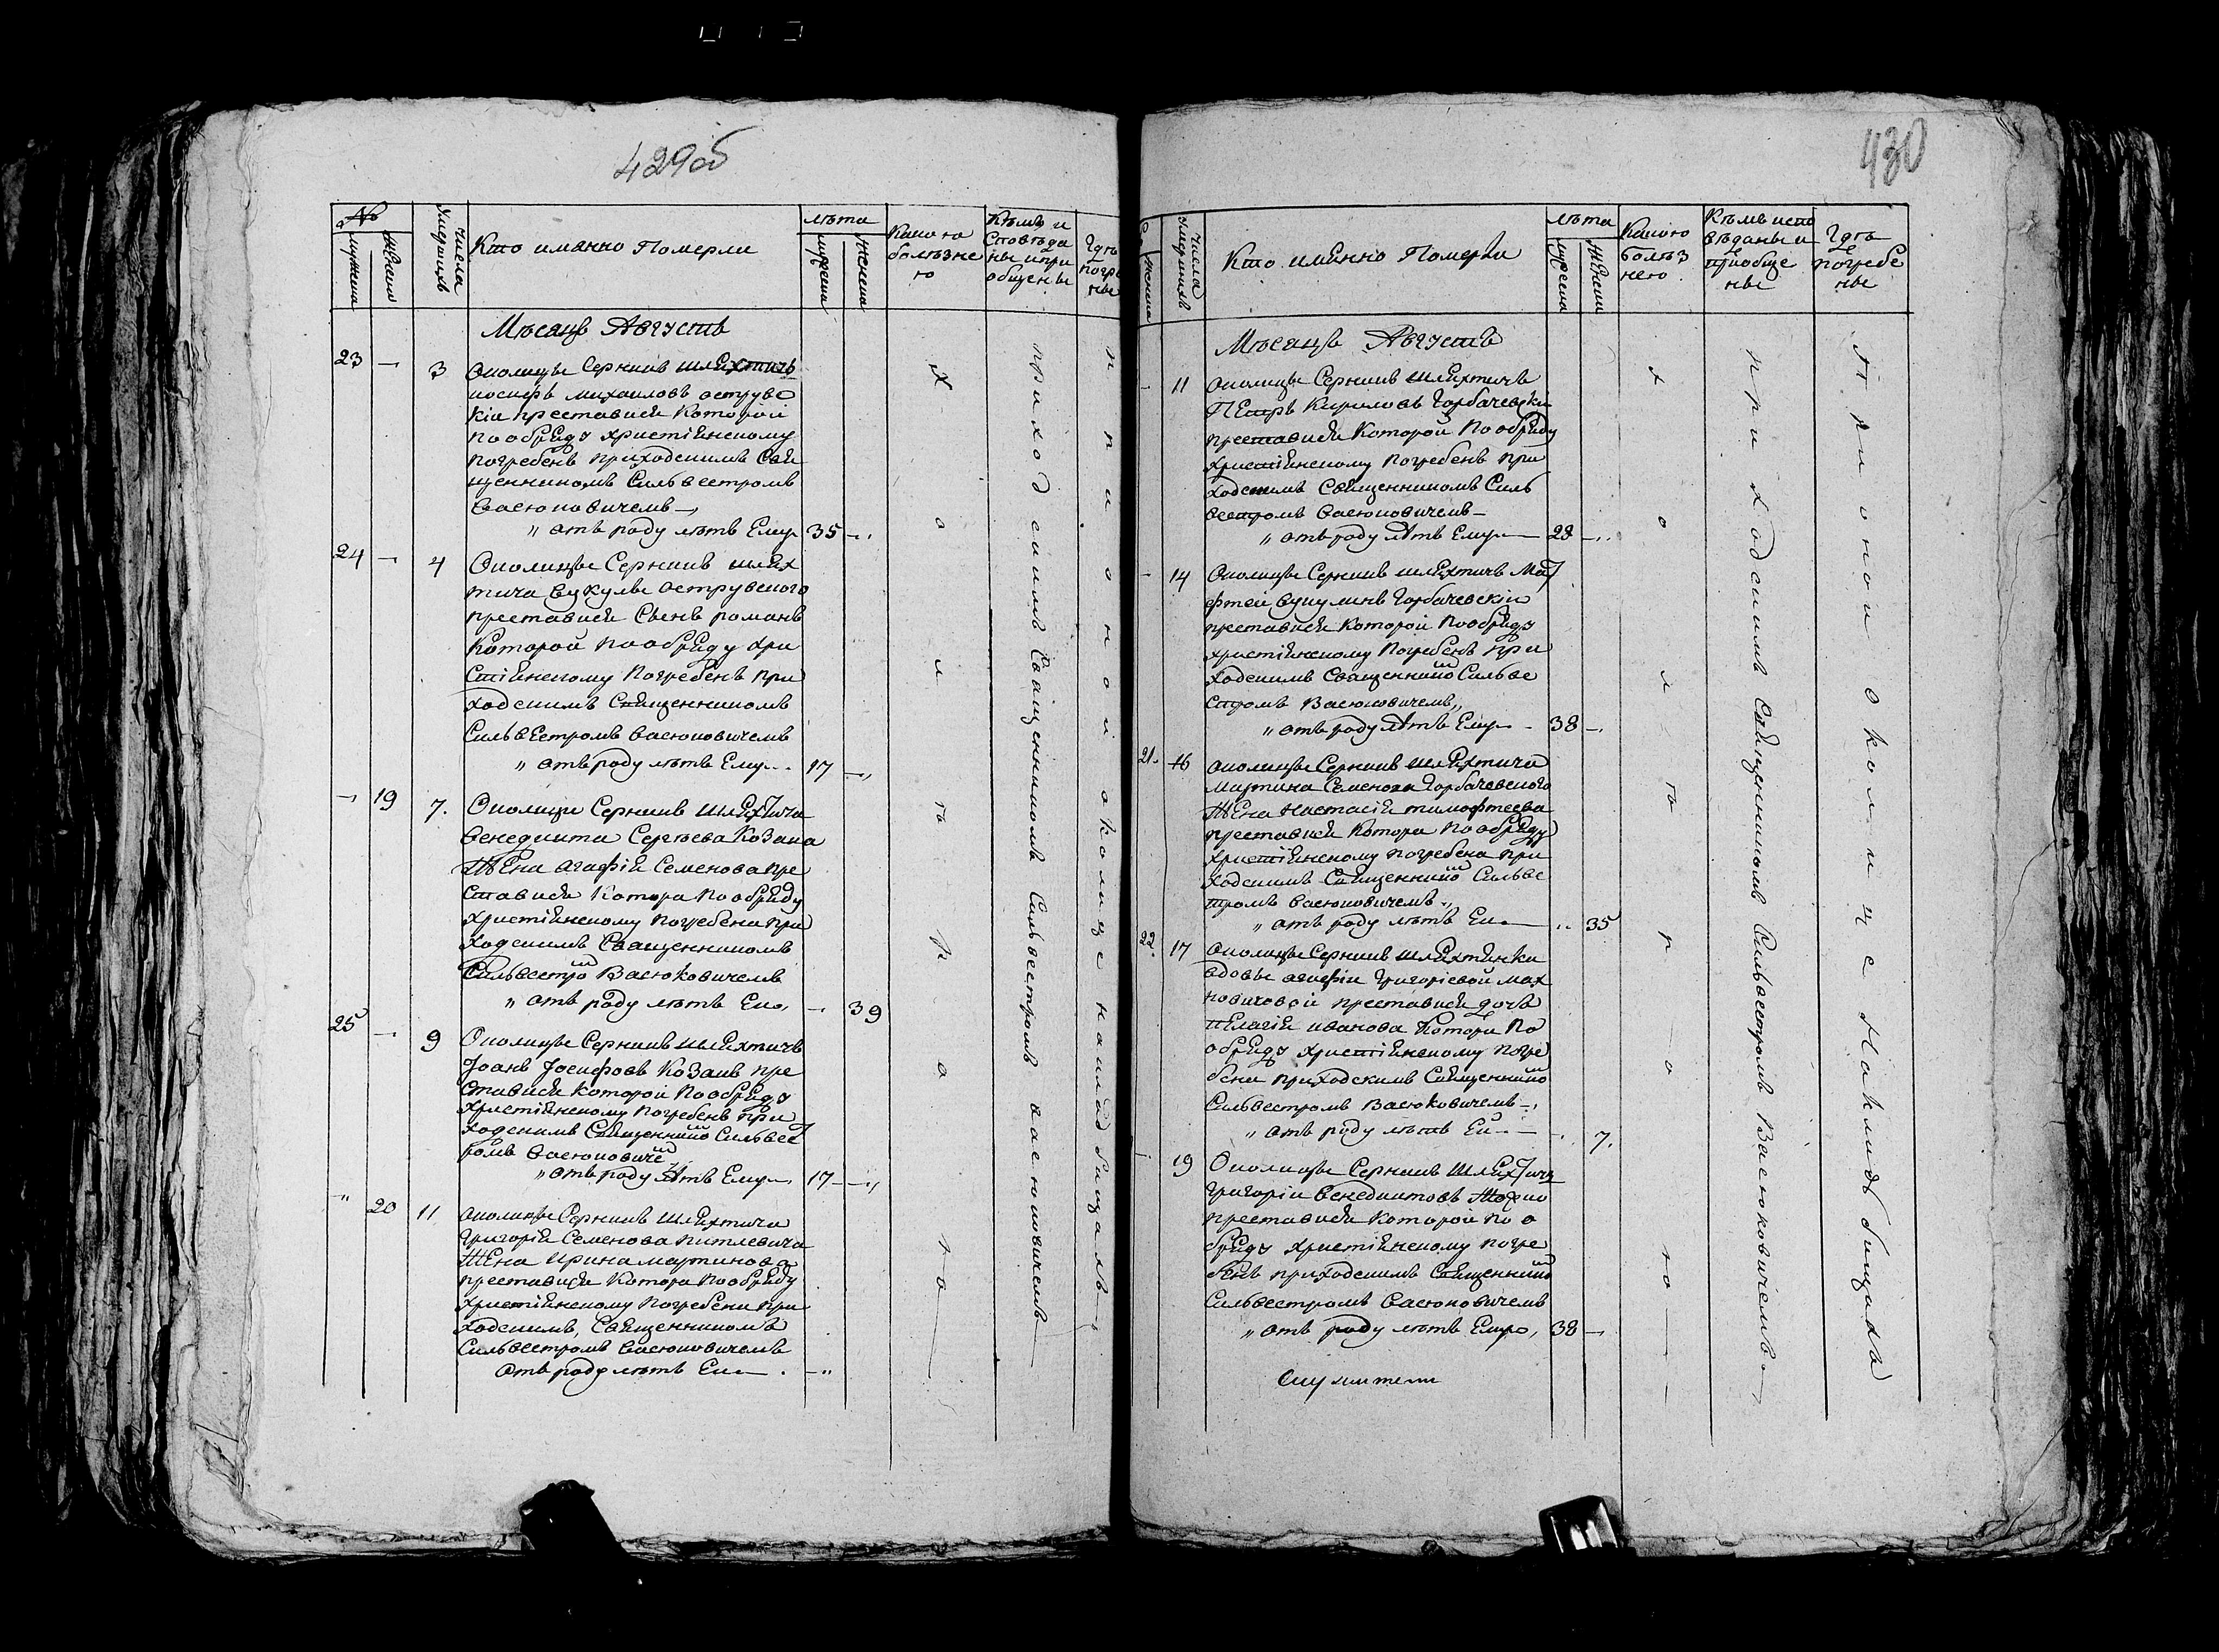 429об
№
мужеска
женска
числа
умершихъ
Кто имянно Померли
лѣта
мужеска
женска
Какою
болѣзне
ю
Кѣмъ и
Сповѣда
ны и при
общены
Гдѣ
погре
ны
Мѣсяцъ Августъ
23 — 3 Околицы Серникъ шляхтичь
иосифъ михаиловъ острувс
кіи преставися Которой
по обряду христіянскому
погребенъ приходскимъ Свя
щенникомъ Сильвестромъ
Васюковичемъ —
„ отъ роду лѣтъ Ему 35 —
24 — 4 Околицы Серникъ шлях
тича вукулы острувского
преставися Сынъ романъ
Которой по обряду хри
стіянскому Погребенъ при
ходскимъ Священникомъ
СильвЕстромъ васюковичемъ
„ отъ роду лѣтъ Ему 17 —
— 19 7. Околицы Серникъ шляхтича
венедикта Сергѣева Козака
ЖЕна агафія Семенова пре
ставися Котора по обряду
христіянскому погребена при
ходскимъ Священникомъ
Сильвестромъ Васюковичемъ
„ отъ роду лѣтъ Еи — 39
25 — 9 Околицы Серникъ шляхтичъ
Іоанъ Іосифовъ Козакъ пре
ставися Которой по обряду
христіянскому Погребенъ при
ходскимъ Священникомъ Сильвест
ромъ васюковичем
„ отъ роду лѣтъ Ему 17 —
— 20 11 околицы Серникъ шляхтича
григорія Семенова питлевича
ЖЕна ирина мартинова
преставися Котора по обряду
христіянскому погребена при
ходскимъ Священникомъ
Сильвестромъ васюковичемъ
отъ роду лѣтъ Еи —
холѣрою
приходскимъ Священникомъ Сильвестромъ васюковичемъ
при оной околице на кладбищахъ
430
женска
числа
умершихъ
Кто имЕнно Померли
лѣта
мужеска
женска
Какою
болѣз
нею
Кѣмъ испо
вѣданы и
приобще
ны
Гдѣ
погребе
ны
Мѣсяцъ Августъ
— 11 околицы Серникъ шляхтичъ
ПЕтръ Кириловъ Горбачевски
преставися Которой По обряду
христіянскому Погребенъ при
ходскимъ Священникомъ Силь
вестромъ васюковичемъ —
„ отъ роду лѣтъ Ему — 28 —
— 14 Околицы Серникъ шляхтичъ Мат
фтеи вукулинъ Горбачевскіи
преставися Которой По обряду
христіянскому Погребенъ при
ходскимъ Священником Сильве
стромъ Васюковичемъ,,
„ отъ роду лѣтъ Ему — 38 —
21. 16 околицы Серникъ шляхтича
мартина Семенова Горбачевского
ЖЕна настасія тимофтеева
преставися Котора по обряду
христіянскому погребена при
ходскимъ Священником Сильве
тромъ васюковичемъ
„ отъ роду лѣтъ Еи — 35
22. 17 околицы Серникъ шляхтянки
вдовы агафіи Григоріевой мах
новичовой преставися дочь
пЕлагія иванова Котора по
обряду христіянскому погре
бена приходскимъ Священником
Сильвестромъ Васюковичемъ —
„ отъ роду лѣтъ Ей — 7.
— 19 Околицы Серникъ шляхтичъ
григоріи венедиктовъ
преставися Которой по о
бряду христіянскому погре
бенъ приходскимъ Священником
Сильвестромъ васюковичемъ
„ отъ роду лѣтъ Ему, 38 —
холѣрою
приходскимъ Священникомъ Сильвестромъ Васюковичемъ
При оной околице На кладбищахъ